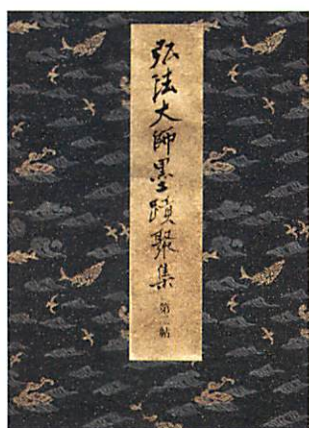 弘法大師墨蹟聚集 第一帖